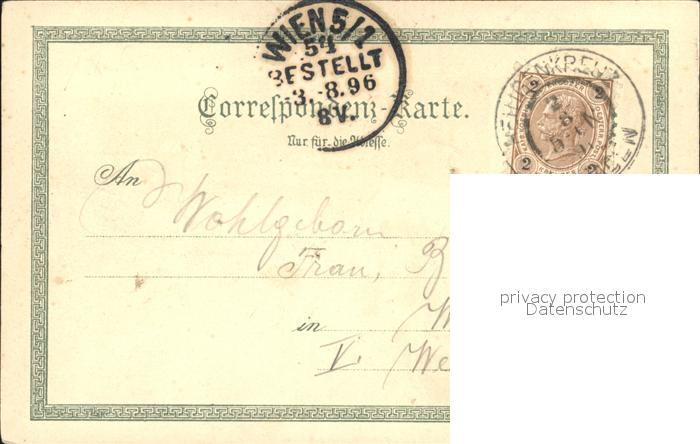 WIEN 5/1
54
BESTELLT
3.8.96
8V.
Correspondenz-Karte.
Nur für die Adresse.
2 2
2
An
Wohlgeboren
Frau, B
in W
V. We
privacy protection
Datenschutz